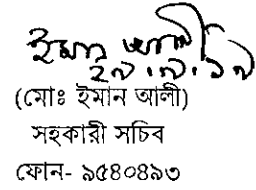 ইমান আলী
২৯.৭.১৯
(মোঃ ইমান আলী)
সহকারী সচিব
ফোন- ৯৫৪০৪৯৩